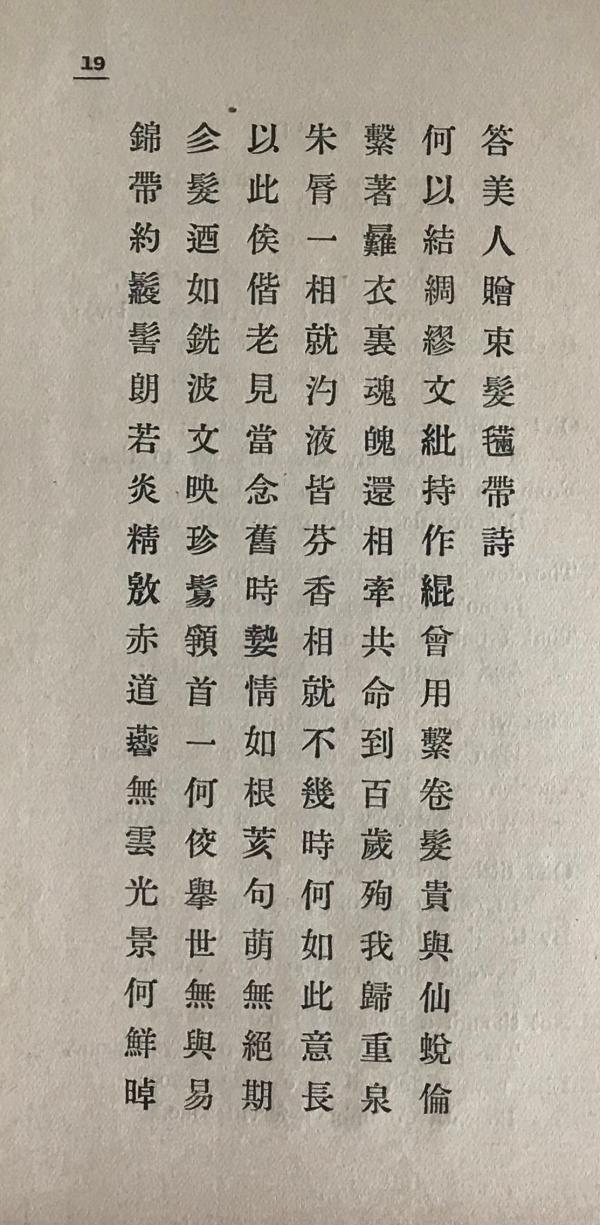 19
答美人贈束髮䯰帶詩
何以結綢繆文紕持作緄曾用繫卷髮貴與仙蛻倫
繫著羅衣裏魂魄還相牽共命到百歲殉我歸重泉
朱脣一相就汋液皆芬香相就不幾時何如此意長
以此俟偕老見當念舊時蟄情如根荄句萌無絕期
㐱髮迺如銑波文映珍鬄頷首一何佼舉世無與易
錦帶約鬟髻朗若炎精敫赤道無雲光景何鮮晫